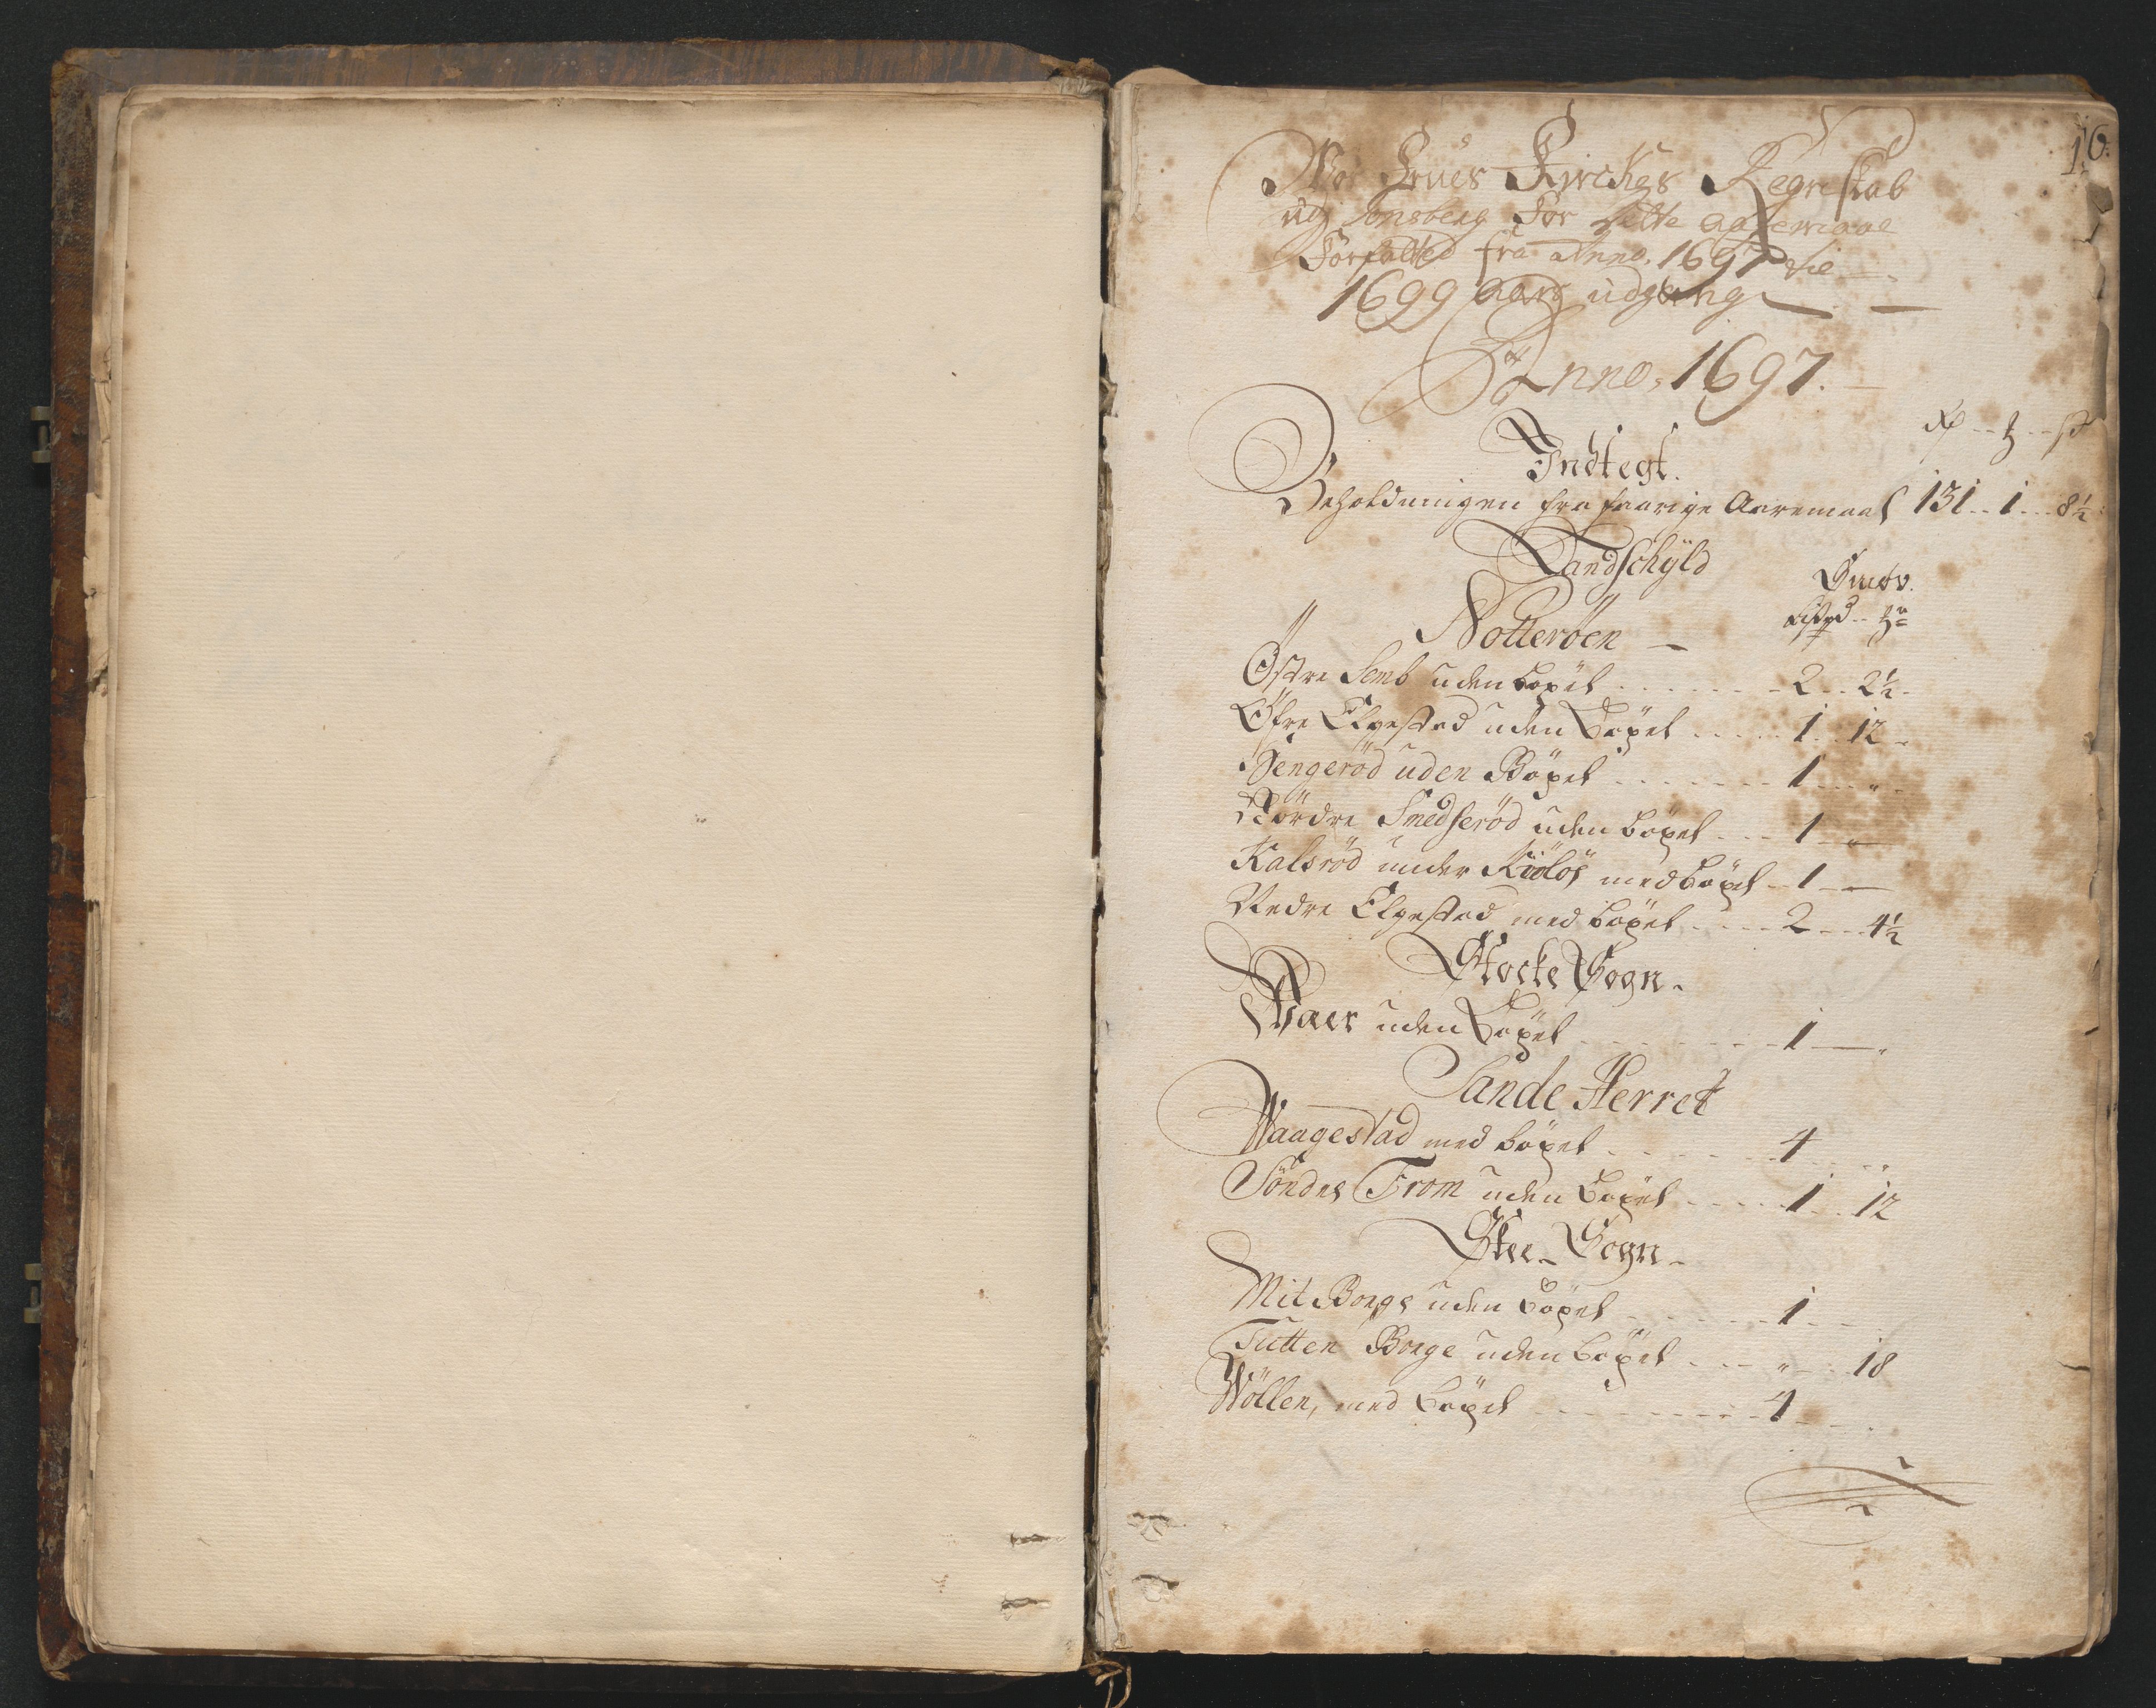 16.
Vor Frues Kirckes Regnskab
udj Tonsberg For dette aaremaal
Forfatted fra Anno. 1697 til
1699 Aars udgang
Anno, 1697.
Indtegt.
Beholdningen fra forrige Aaremaal 131 .. 1 .. 8½
Landschÿld
Nötteröen
Östre Semb uden böxel 2 .. 2½
Öfre Elgestad uden Böxel 1 .. 12
Bengeröd uden Böxel 1 .. "
Nördre Smedseröd uden böxel 1 .. "
Kalsröd under Kiölös med böxel 1
Nedre Elgestad med böxel 2 .. 4½
Stocke Sogn
uden Böxel 1
Sande Herret
Haagestad med böxel 4 .. "
Söndes From uden böxel 1 .. 12
Slee Sogn
Mit Borge uden böxel 1
Tutten Borge uden böxel " .. 18
Wöllen, med böxel 4